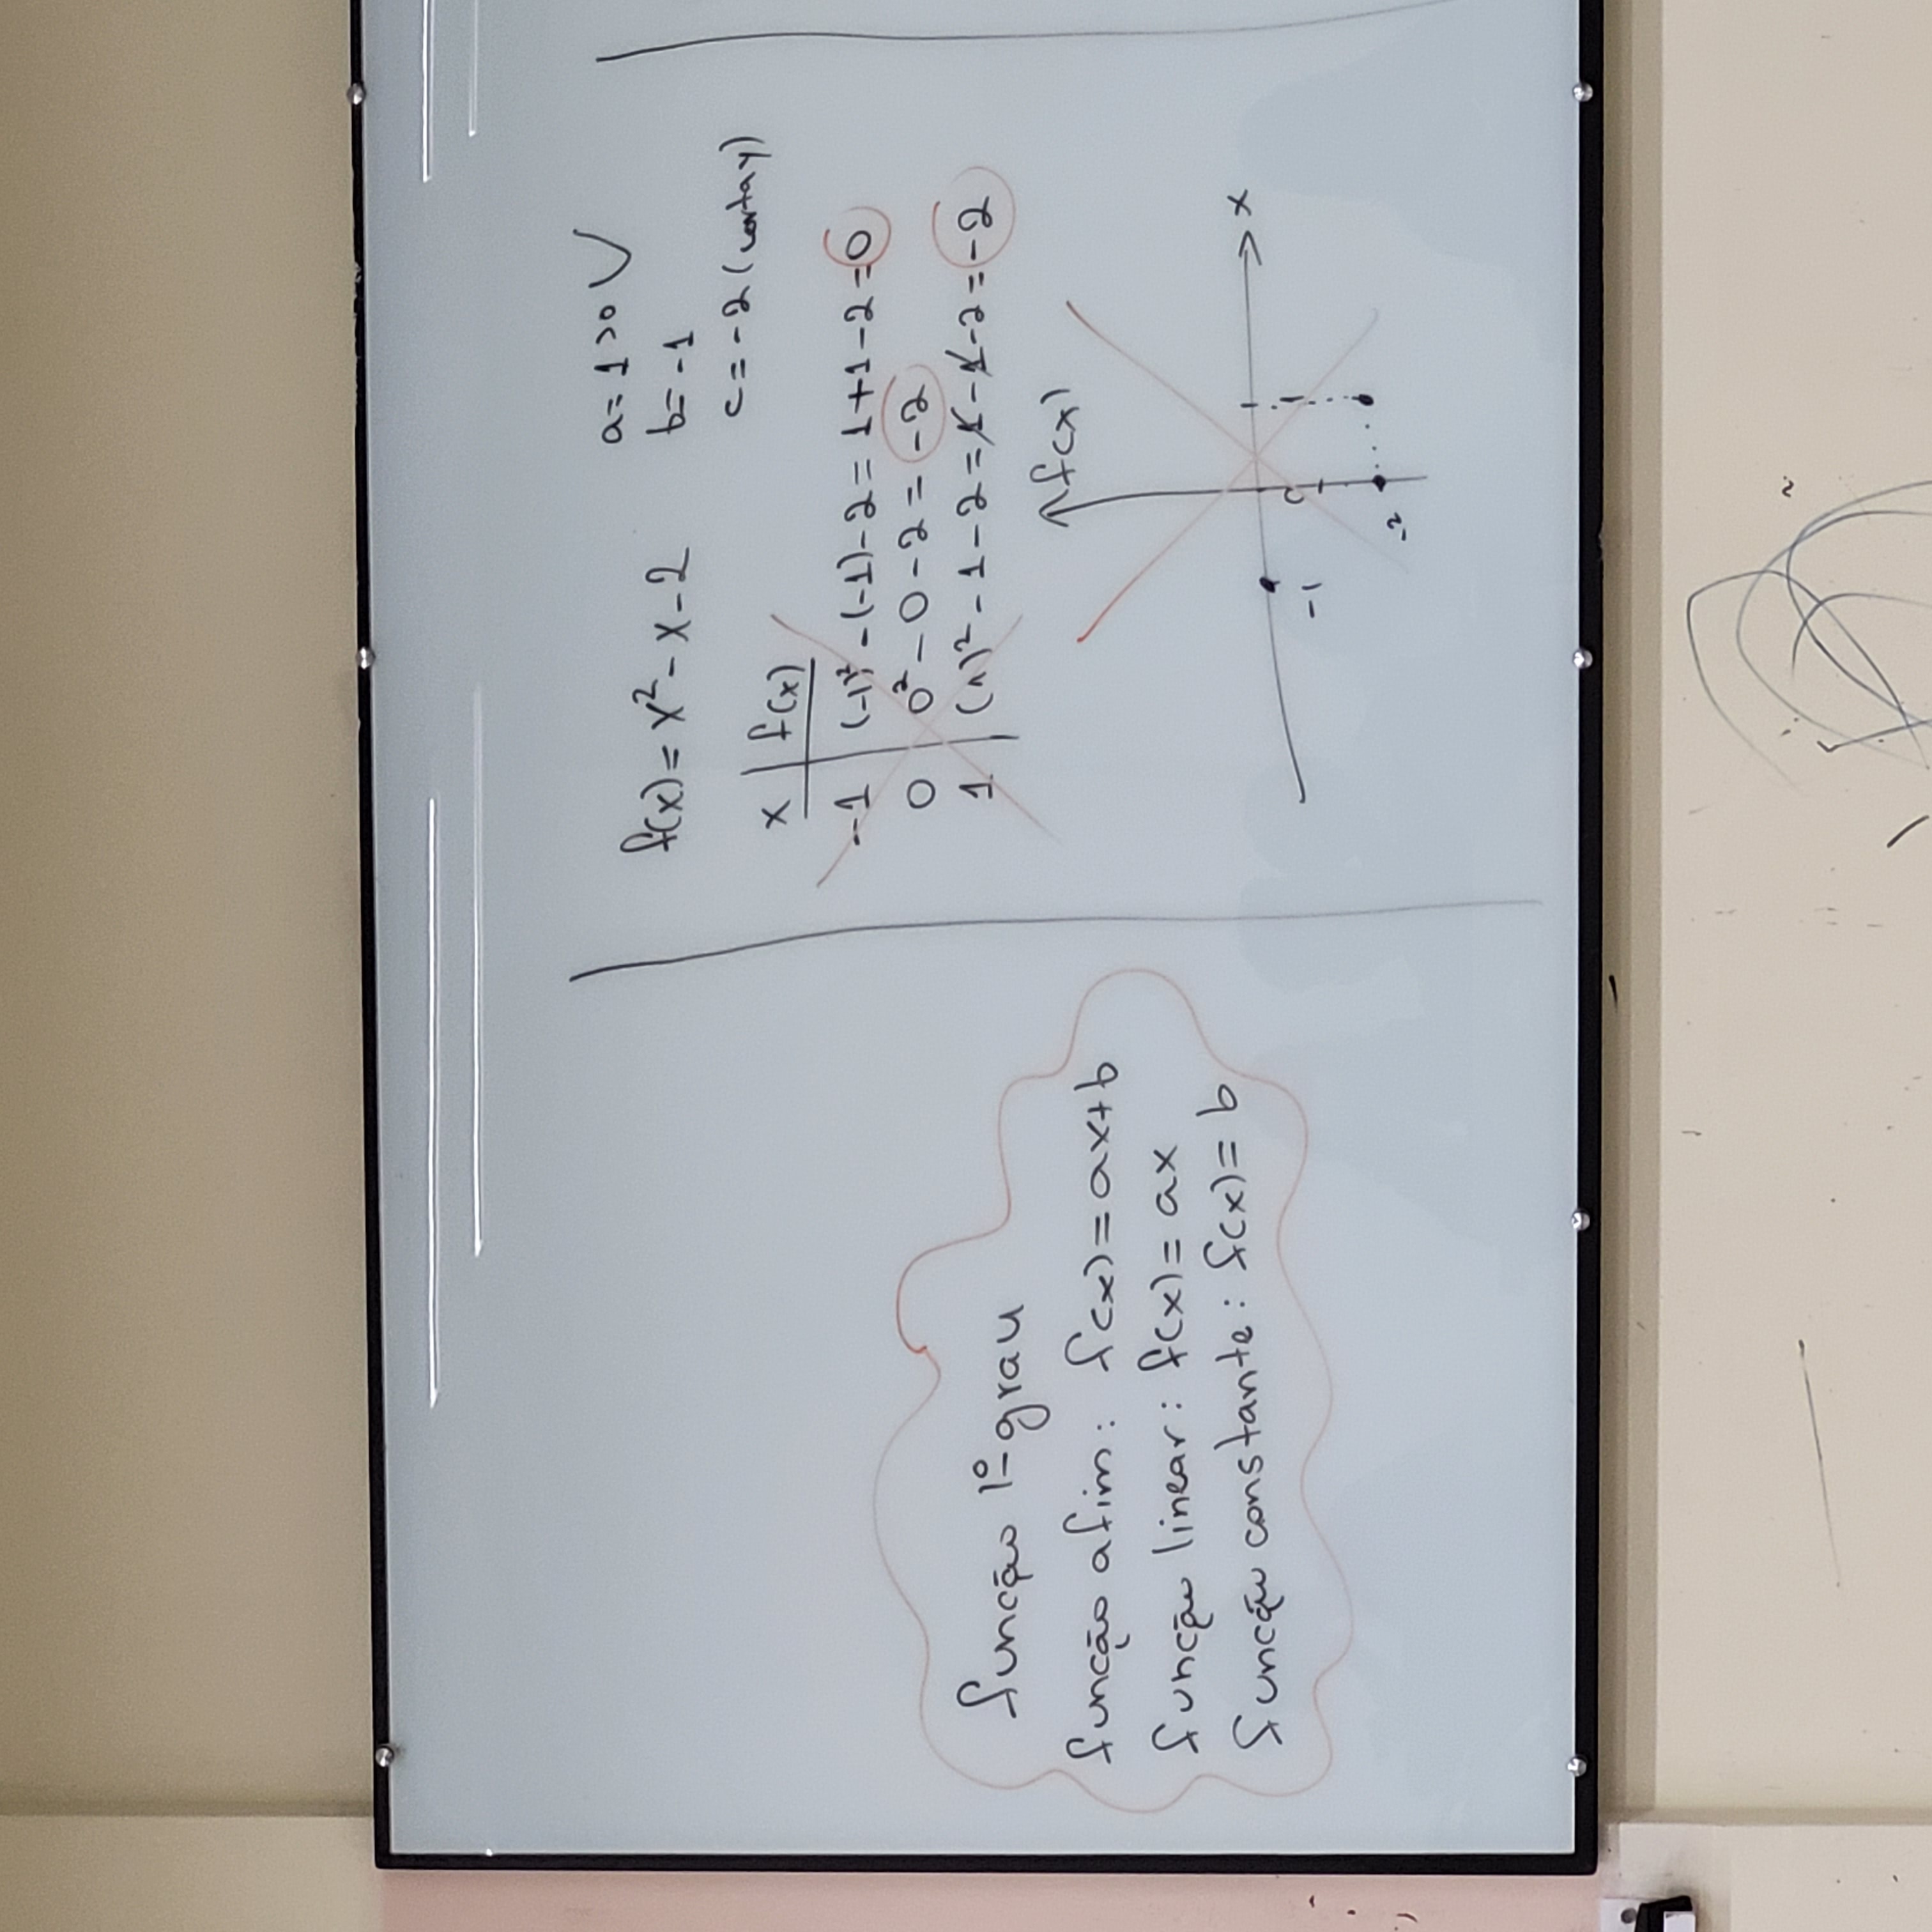 função 1º grau
função afim: f(x)=ax+b
função linear: f(x)=ax
função constante: f(x)=b
f(x)=x²-x-2
a=1>0
b=-1
c=-2 (corta y)
x f(x)
-1 (-1)²-(-1)-2=1+1-2=0
0 0²-0-2=-2
1 (1)²-1-2=1-1-2=-2
f(x)
x
-1 0 1
-2